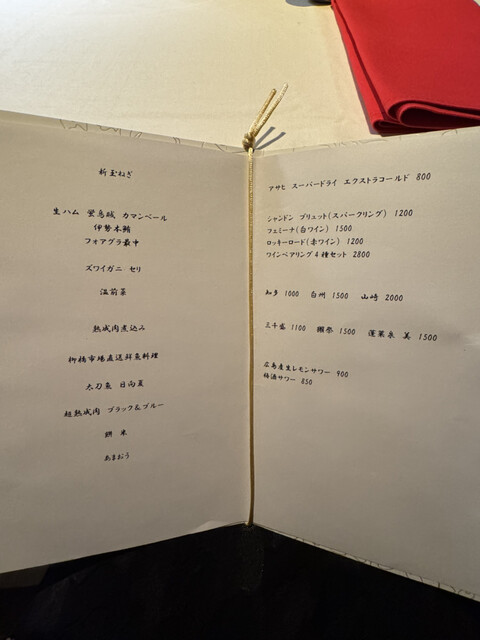 新玉ねぎ
生ハム 蛍烏賊 カマンベール
伊勢本鮪
フォアグラ最中
ズワイガニ セリ
温前菜
熟成肉煮込み
柳橋市場直送鮮魚料理
太刀魚 日向夏
超熟成肉 ブラック＆ブルー
餅 米
あまおう
アサヒ スーパードライ エクストラコールド 800
シャンドン ブリュット(スパークリング) 1200
フェミーナ(白ワイン) 1500
ロッキーロード(赤ワイン) 1200
ワインペアリング4種セット 2800
知多 1000 白州 1500 山崎 2000
三千盛 1100 獺祭 1500 蓬莱泉 美 1500
広島産生レモンサワー 900
梅酒サワー 850